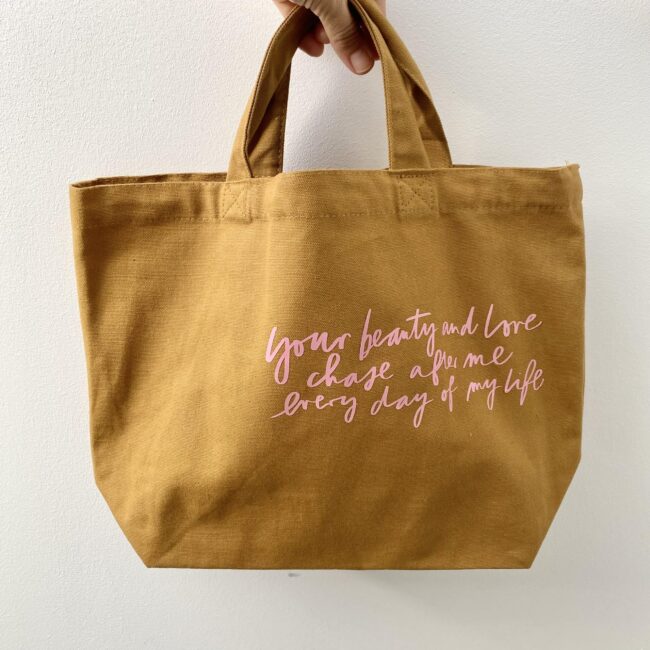 your beauty and love
chase after me
every day of my life